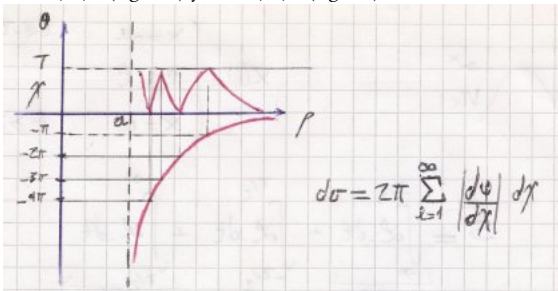 θ
π
χ
a
ρ
-π
-2π
-3π
-4π
dσ = 2π ∑ i=1 ∞ |dφ/dχ| dχ